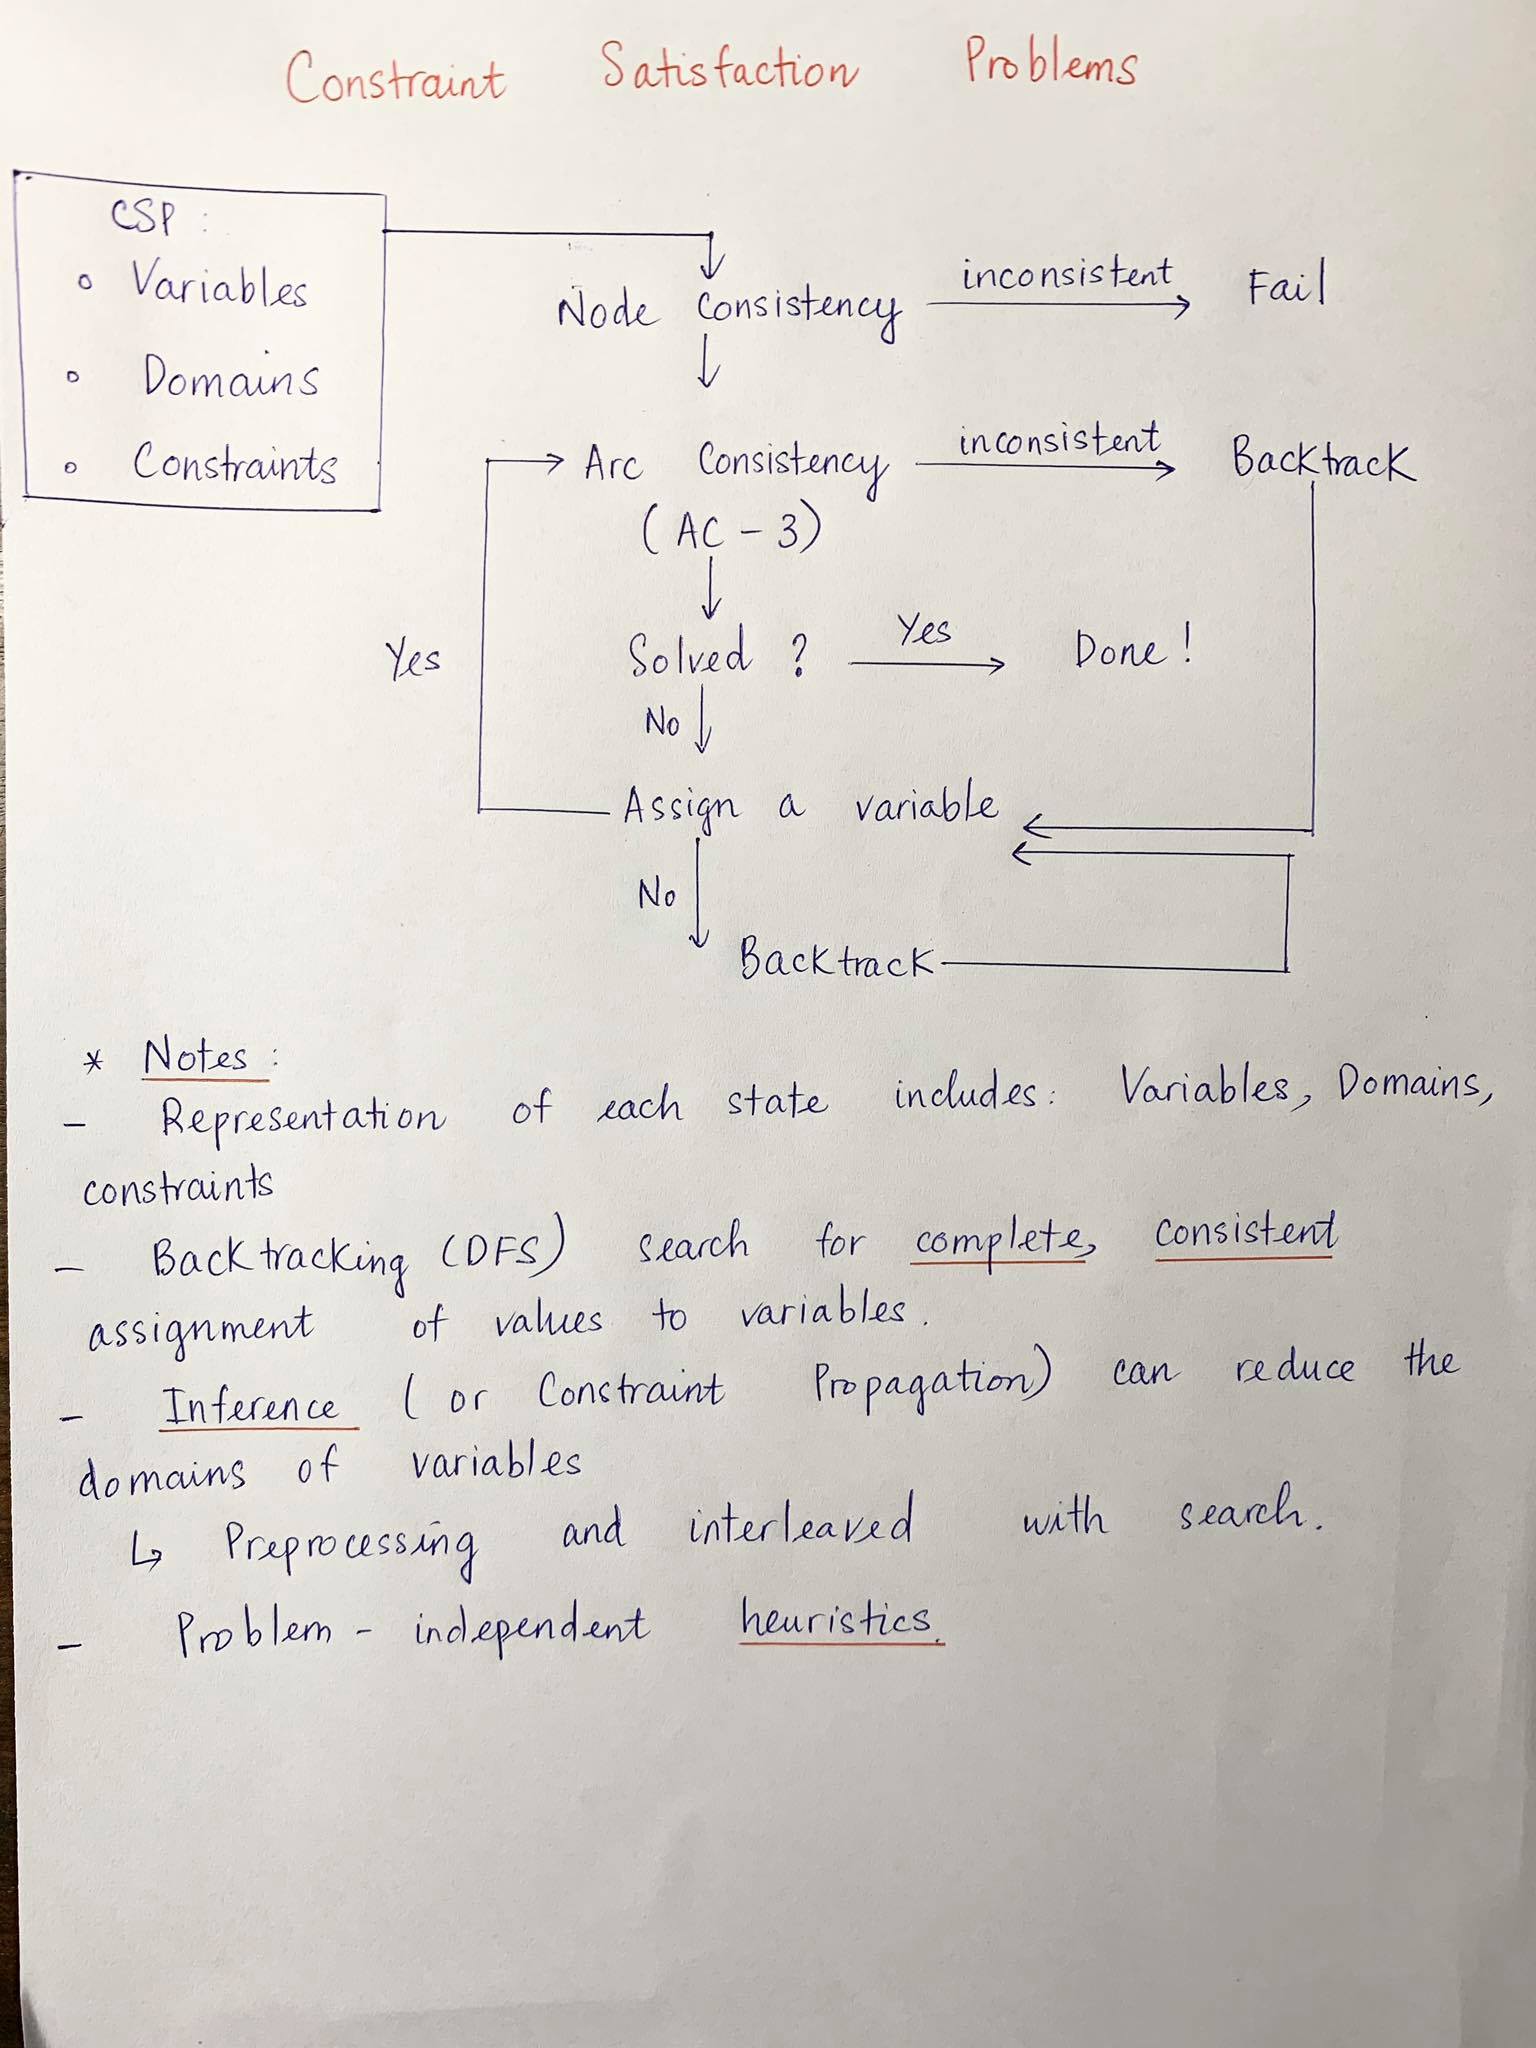 Constraint Satisfaction Problems
CSP :
Variables
Domains
Constraints
Node Consistency
inconsistent
Fail
Arc Consistency
(AC - 3)
inconsistent
Backtrack
Yes
Solved ?
Yes
Done !
No
Assign a variable
No
Backtrack
* Notes :
- Representation of each state includes: Variables, Domains,
constraints
- Backtracking (DFS) search for complete, consistent
assignment of values to variables.
- Inference (or Constraint Propagation) can reduce the
domains of variables
↳ Preprocessing and interleaved with search.
- Problem - independent heuristics.